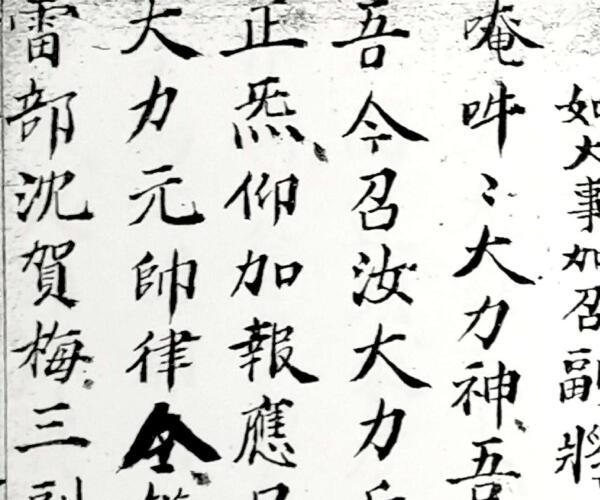 如大事加召副將
唵吽〻大力神吾
吾今召汝大力
正炁仰加報應
大力元帥律令
雷部沈賀梅三副